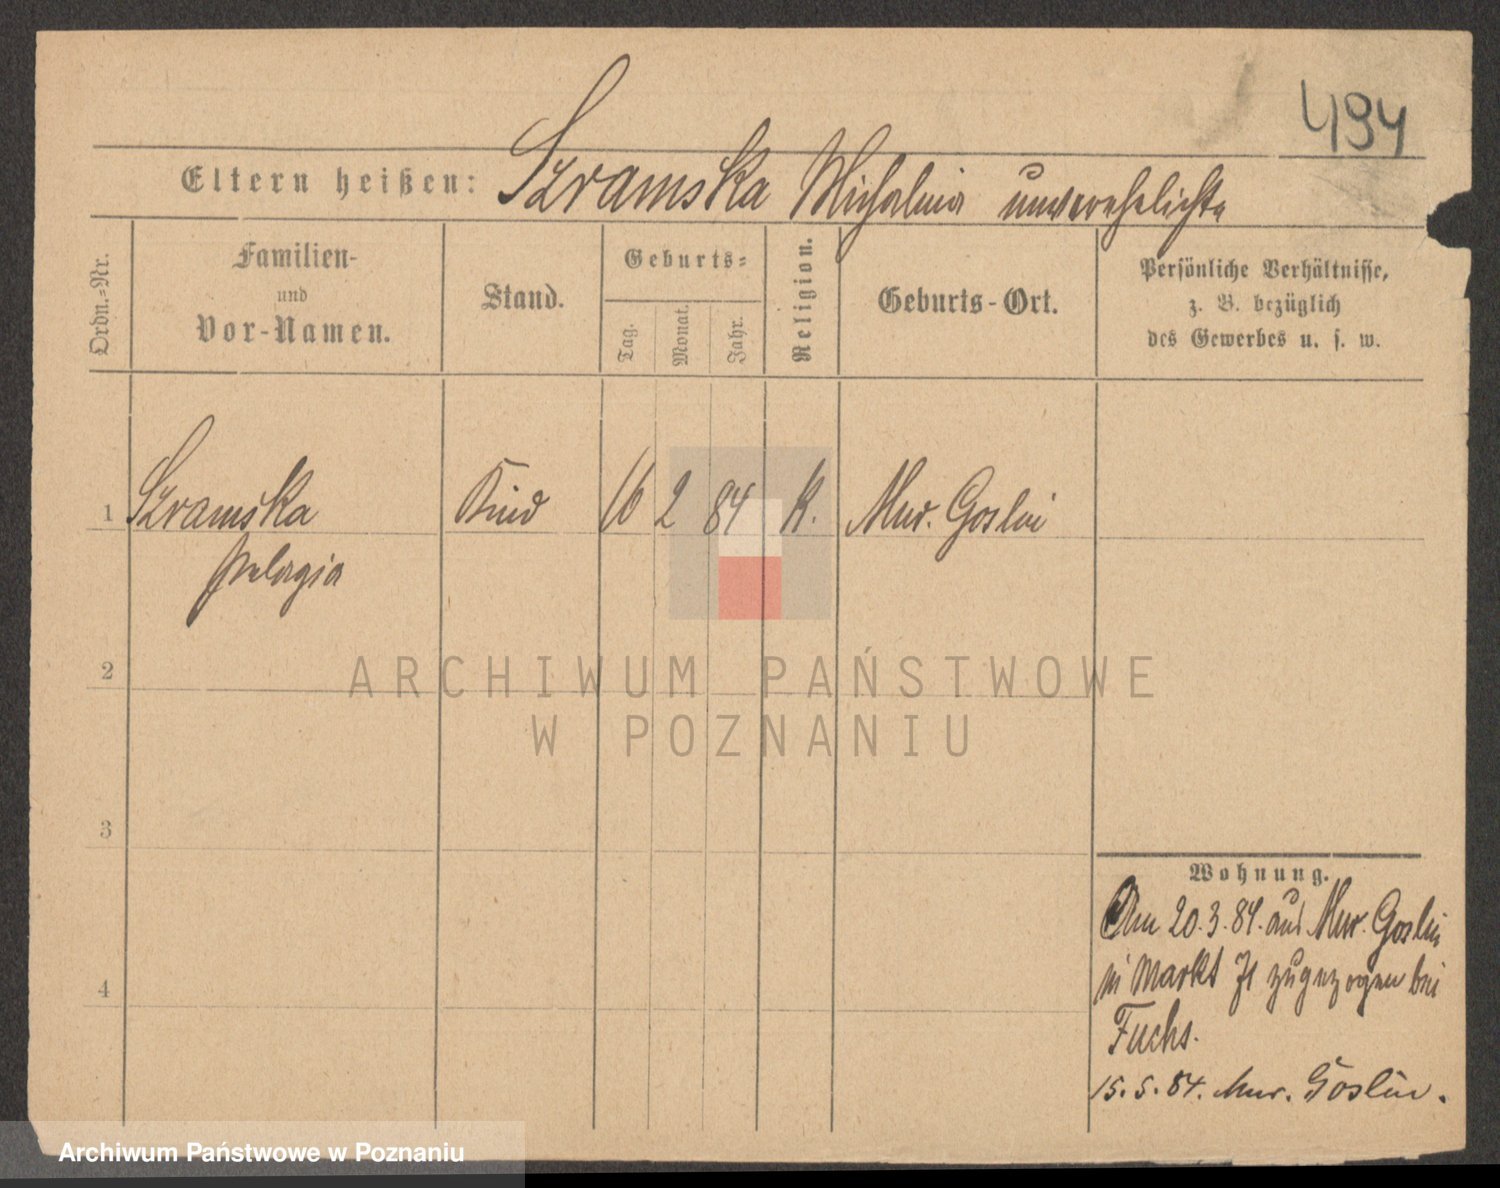 494
Eltern heißen: Szramska Michalina unverehelichte
Ordn.-Nr.
Familien-
und
Vor-Namen.
Stand.
Geburts-
Tag.
Monat.
Jahr.
Religion.
Geburts-Ort.
Persönliche Verhältnisse,
z. B. bezüglich
des Gewerbes u. s. w.
1 Szramska Kind 16 2 84 K. Mur. Goslin
Pelagia
2
3
4
ARCHIWUM PAŃSTWOWE
W POZNANIU
Wohnung.
Am 20.3.84. aus Mur. Goslin
in Markt 71 zugezogen bei
Fuchs.
15.5.84. Mur. Goslin.
Archiwum Państwowe w Poznaniu